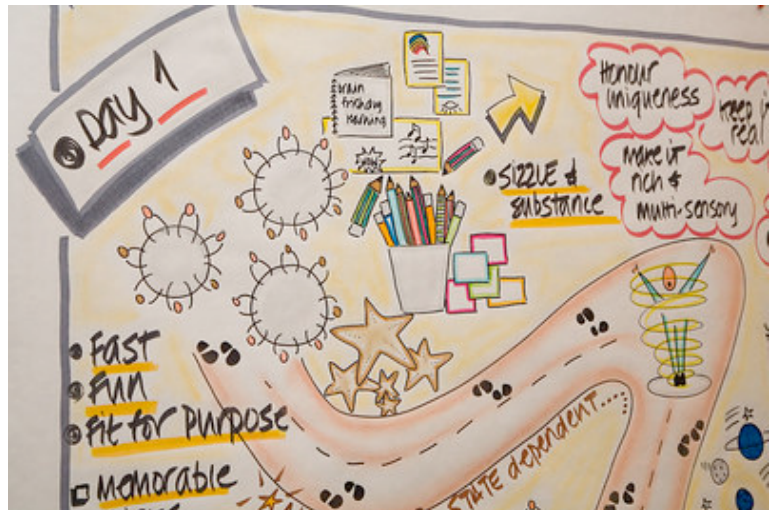 Day 1
brain
friendly
learning
WOW
Honour
uniqueness
Keep it
real
make it
rich &
multi-sensory
SIZZLE &
substance
Fast
Fun
Fit for Purpose
Memorable
STATE dependent....